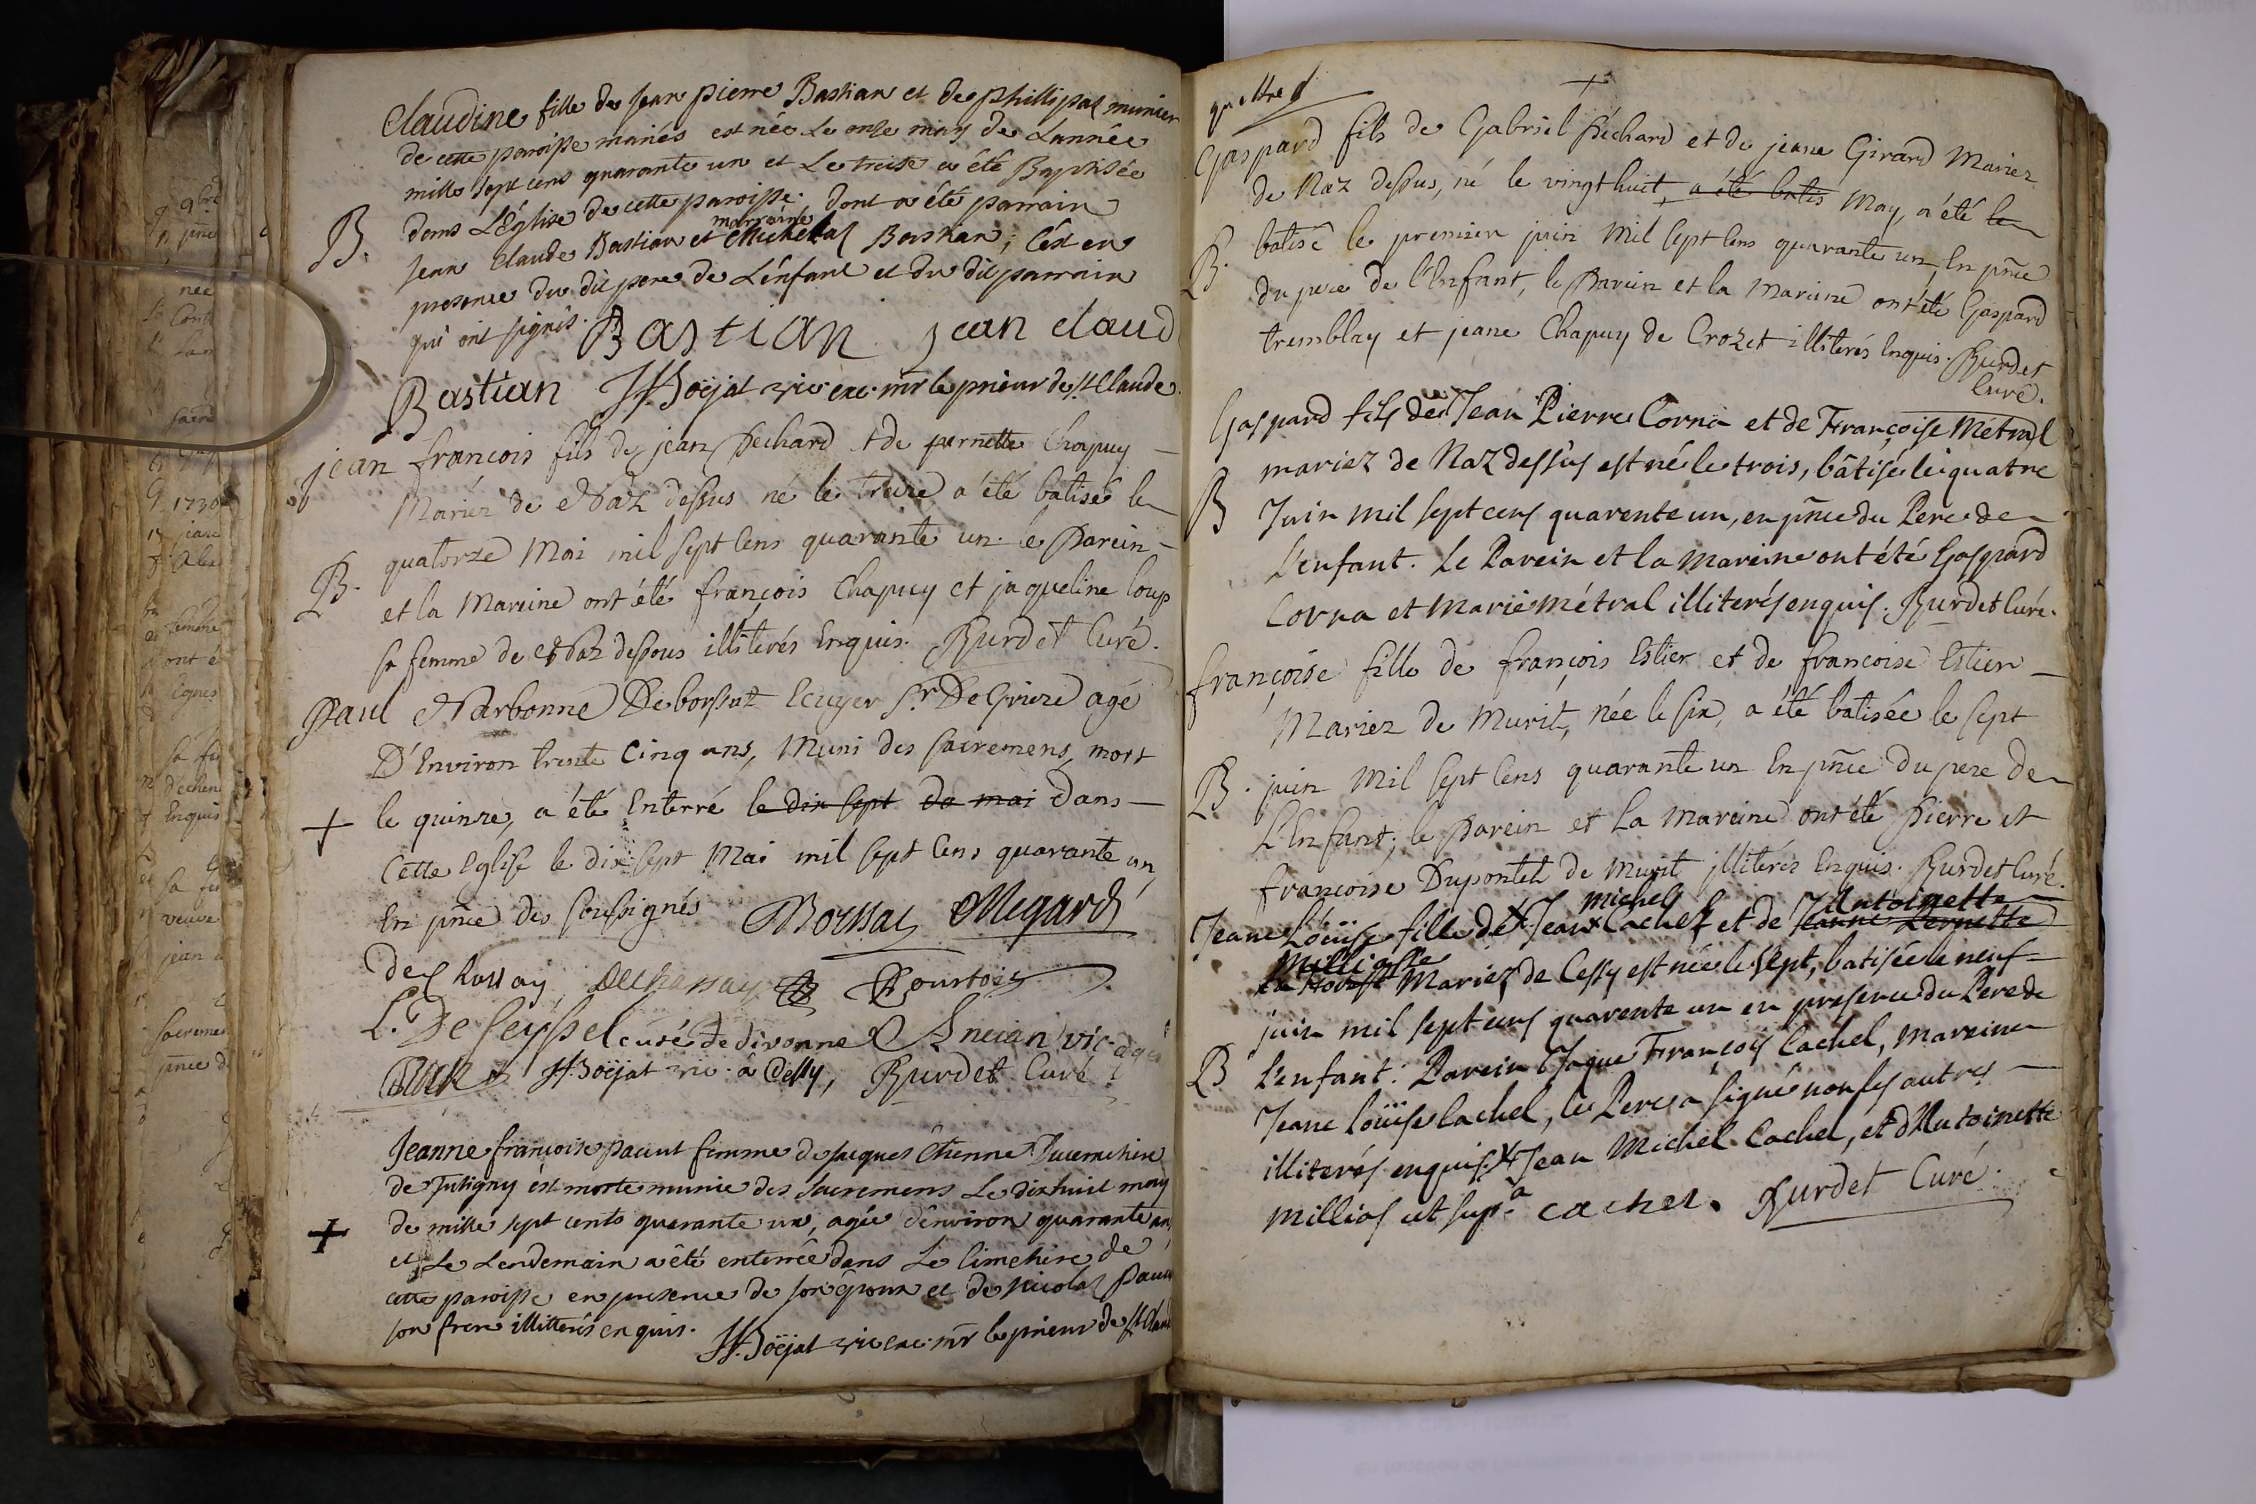 Claudine fille de Jean pierre Bastian et de phillipaz munier
de cette paroisse mariés est née Le onze may de Lannée
mille sept cens quarante un et Le treize a été Baptisée
B. dans L'Église de cette paroisse, dont a été parrain
Jean Claude Bastian et marraine Michelaz Bastian; C'est en
presence du dit pere de L'enfant et du dit parrain
qui ont signés. Bastian jean claud
Bastian Boëjat vic exc. mr le prieur de St Claude.
jean francois fils de jean Pechard et de pernette Chapuy
Mariez de Naz dessus né le treize a été batisé le
B. quatorze Mai mil sept Cens quarante un. le Parein
et la Mareine ont été françois Chapuy et jaqueline loup
sa femme de Naz dessous illiterés Enquis. Burdet Curé.
Paul Narbonne Deborssat Ecuyer Sr De Grieze agé
D'Environ trente Cinq ans, Muni des sacremens, mort
+ le quinze, a été Enterré le dix sept de mai dans
Cette Eglise le dix sept Mai mil sept Cens quarante un,
En pnce des soussignés Borssat Megard
de Chassay, Dechassay Courtois
L. De Seyssel curé de divonne Ancian vic
Boëjat vic. à Cessy, Burdet Curé
Jeanne françoise pacut femme de Jacques Étienne Ducimetiere
de Tutigny est morte munie des sacremens Le dixhuit may
+ de mille sept cents quarante un, agée d'environ quarante an,
et Le Lendemain a été enterrée dans Le Cimetiere de
cette paroisse en presence de son époux et de Nicolas Pacu
son frere illitterés enquis. Boëjat vic exc. mr le prieur de St Claud
quattre
+
Gaspard fils de Gabriel Péchard et de jeane Girard Mariez
de Naz dessus, né le vingt huit, a été batis May, a été le
B. batisé le premier juin Mil sept Cens quarante un, En pnce
du pere de l'Enfant, le Parein et la Mareine ont été Gaspard
tremblay et jeane Chapuy de Crozet illiterés Enquis. Burdet
Curé.
Gaspard fils de Jean Pierre Corna et de Françoise Métral
mariez de Naz dessus est né le trois, bâtisé le quatre
B Juin mil sept cens quarente un, en pnce du Pere de
L'enfant. Le Parein et la Mareine ont été Gaspard
Corna et Marie Métral illiterés enquis. Burdet Curé.
françoise fille de françois Estier et de francoise Estier
Mariez de Murit, née le six, a été batisée le sept
B. juin Mil sept Cens quarante un En pnce du pere de
L'Enfant; le Parein et la Mareine ont été Pierre et
francoise Dupontet de Murit illiterés Enquis. Burdet Curé.
Michel Antoinette
Jeane Loüise fille de Jean Cachet et de Jeanne Pernette
Mariez de Cessy est née le sept, batisée le neuf
juin mil sept cens quarente un en presence du Pere de
B L'enfant. Parein Jaque François Cachet, mareine
Jeane loüise Cachet, le Pere a signé non les autres
illiterés enquis. X Jean Michel Cachet, et d'Antoinette
Millias ut supra cachet. Burdet Curé.